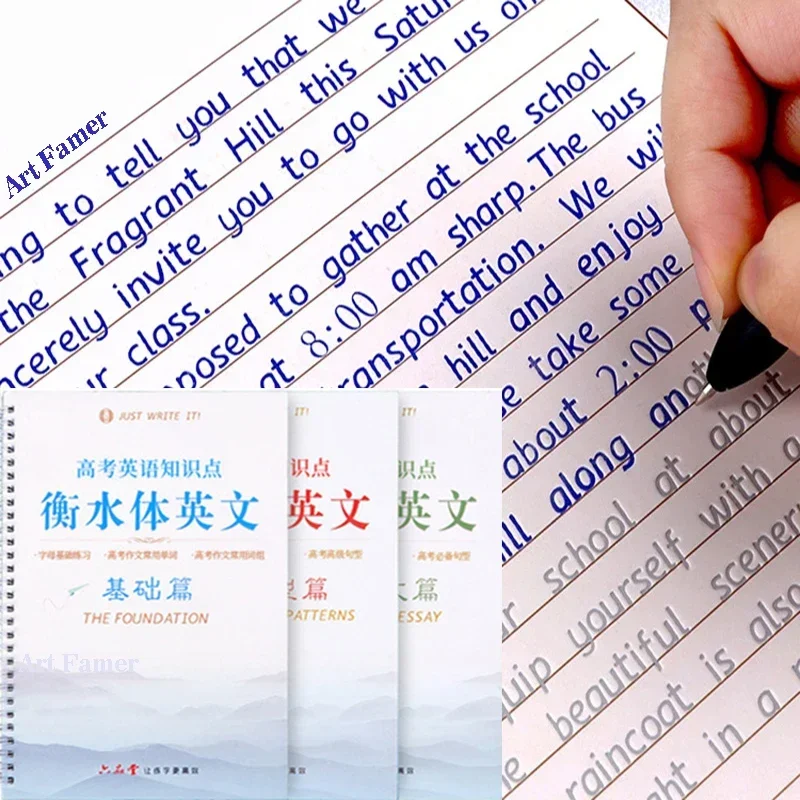 Art Famer
ing to tell you that we
the Fragrant Hill this
ncerely invite you to go with us on
ur class.
posed to gather at the school
at 8:00 am sharp. The bus
transportation. We
hill and enjoy
e take some
about 2:00 p
ill along another
school at about
quip yourself with a
e beautiful scenery
raincoat is also
ght in a
JUST WRITE IT!
高考英语知识点
衡水体英文
·字母基础练习 ·高考作文常用单词 ·高考作文常用词组
基础篇
THE FOUNDATION
Art Famer
六品堂 让练字更高效
IT!
识点
英文
·高考高级句型
型篇
PATTERNS
IT!
识点
英文
·高考必备句型
文篇
ESSAY